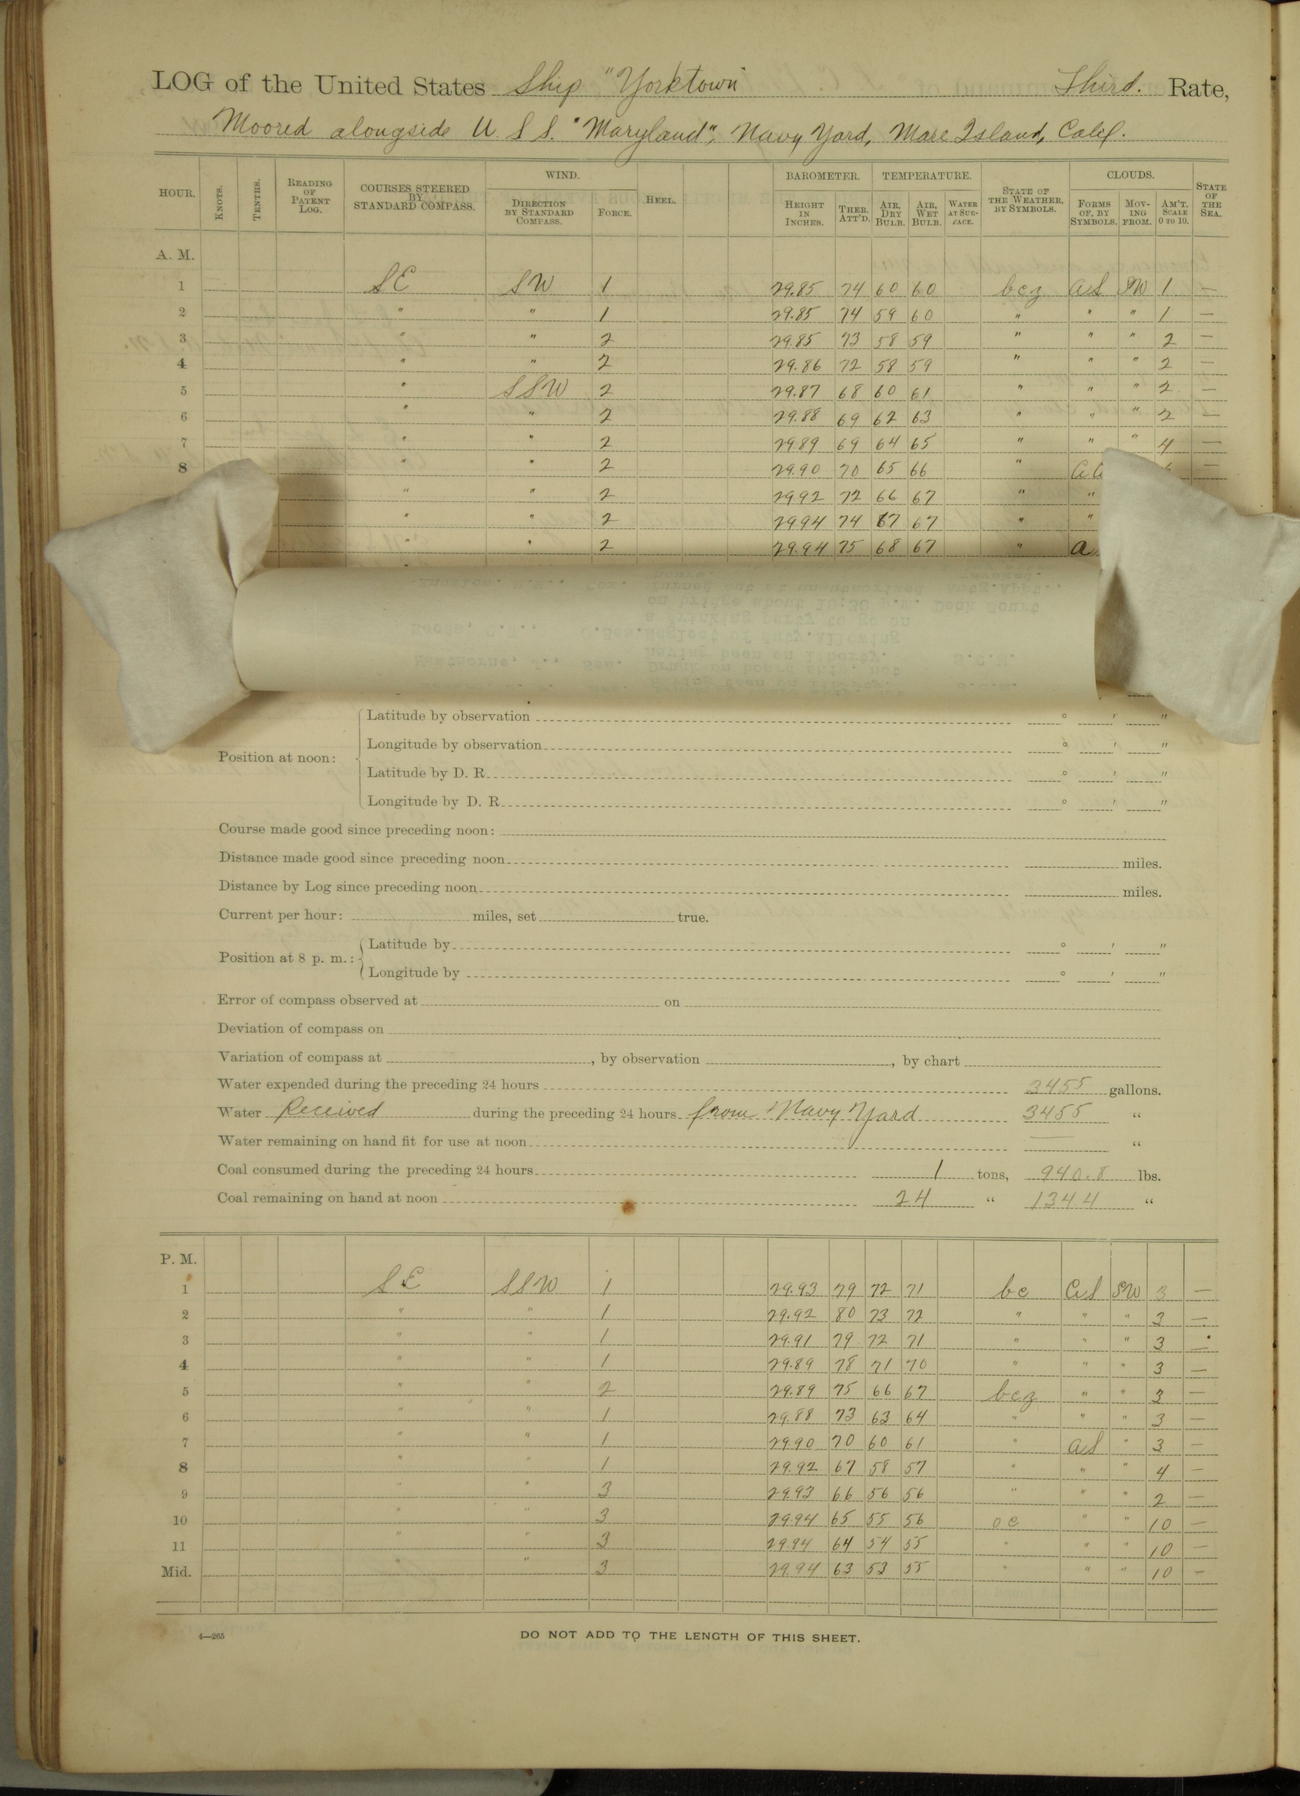 LOG of the United States Ship "Yorktown" Third. Rate,
Moored alongside U.S.S. "Maryland", Navy Yard, Mare Island, Calif.
HOUR. KNOTS. TENTHS. READING OF PATENT LOG. COURSES STEERED BY STANDARD COMPASS. WIND. DIRECTION BY STANDARD COMPASS. FORCE. HEEL. BAROMETER. HEIGHT IN INCHES. THER. ATT'D. TEMPERATURE. AIR, DRY BULB. AIR, WET BULB. WATER AT SURFACE. STATE OF THE WEATHER, BY SYMBOLS. CLOUDS. FORMS OF, BY SYMBOLS. MOVING FROM. AM'T. SCALE 0 TO 10. STATE OF THE SEA.
A. M.
1 SE SW 1 29.85 74 60 60 bcz A.S SW 1 —
2 " " 1 29.85 74 59 60 " " " 1 —
3 " " 2 29.85 73 58 59 " " " 2 —
4 " " 2 29.86 72 58 59 " " " 2 —
5 " SSW 2 29.87 68 60 61 " " " 2 —
6 " " 2 29.88 69 62 63 " " " 2 —
7 " " 2 29.89 69 64 65 " " " 4 —
8 " " 2 29.90 70 65 66 "
" " 2 29.92 72 66 67 " "
" " 2 29.94 74 67 67 " "
" " 2 29.94 75 68 67 "
Position at noon:
Latitude by observation ° ' "
Longitude by observation ° ' "
Latitude by D. R. ° ' "
Longitude by D. R. ° ' "
Course made good since preceding noon:
Distance made good since preceding noon miles.
Distance by Log since preceding noon miles.
Current per hour: miles, set true.
Position at 8 p. m.:
Latitude by ° ' "
Longitude by ° ' "
Error of compass observed at on
Deviation of compass on
Variation of compass at , by observation , by chart
Water expended during the preceding 24 hours 3455 gallons.
Water Received during the preceding 24 hours from Navy Yard 3455 "
Water remaining on hand fit for use at noon — "
Coal consumed during the preceding 24 hours 1 tons, 940.8 lbs.
Coal remaining on hand at noon 24 " 1344 "
P. M.
1 SE SSW 1 29.93 79 72 71 bc C.S SW 3 —
2 " " 1 29.92 80 73 72 " " " 3 —
3 " " 1 29.91 79 72 71 " " " 3 —
4 " " 1 29.89 78 71 70 " " " 3 —
5 " " 2 29.89 75 66 67 bcz " " 3 —
6 " " 1 29.88 73 63 64 " " " 3 —
7 " " 1 29.90 70 60 61 " A.S " 3 —
8 " " 1 29.92 67 58 57 " " " 4 —
9 " " 3 29.93 66 56 56 " " " 2 —
10 " " 3 29.94 65 55 56 oc " " 10 —
11 " " 3 29.94 64 54 55 " " " 10 —
Mid. " " 3 29.94 63 53 55 " " " 10 —
4—265
DO NOT ADD TO THE LENGTH OF THIS SHEET.